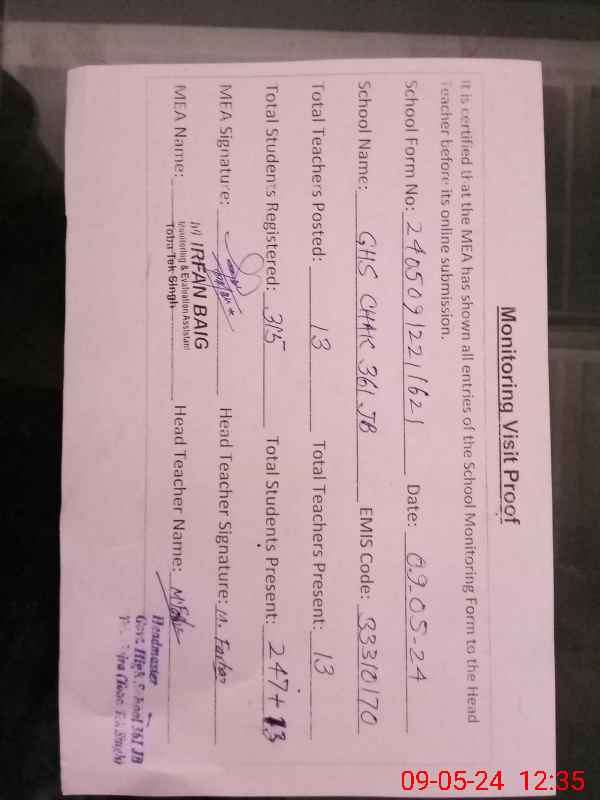 Monitoring Visit Proof
It is certified that the MEA has shown all entries of the School Monitoring Form to the Head
Teacher before its online submission.
School Form No: 240509122 11621 Date: 09-05-24
School Name: GHS CHAK 361 JB EMIS Code: 33310170
Total Teachers Posted: 13 Total Teachers Present: 13
Total Students Registered: 315 Total Students Present: 247+13
MEA Signature: Head Teacher Signature:
MEA Name: IRFAN BAIG Head Teacher Name:
Monitoring & Evaluation Assistant
Toba Tek Singh
Headmaster
Govt. High School 361 JB
09-05-24 12:35